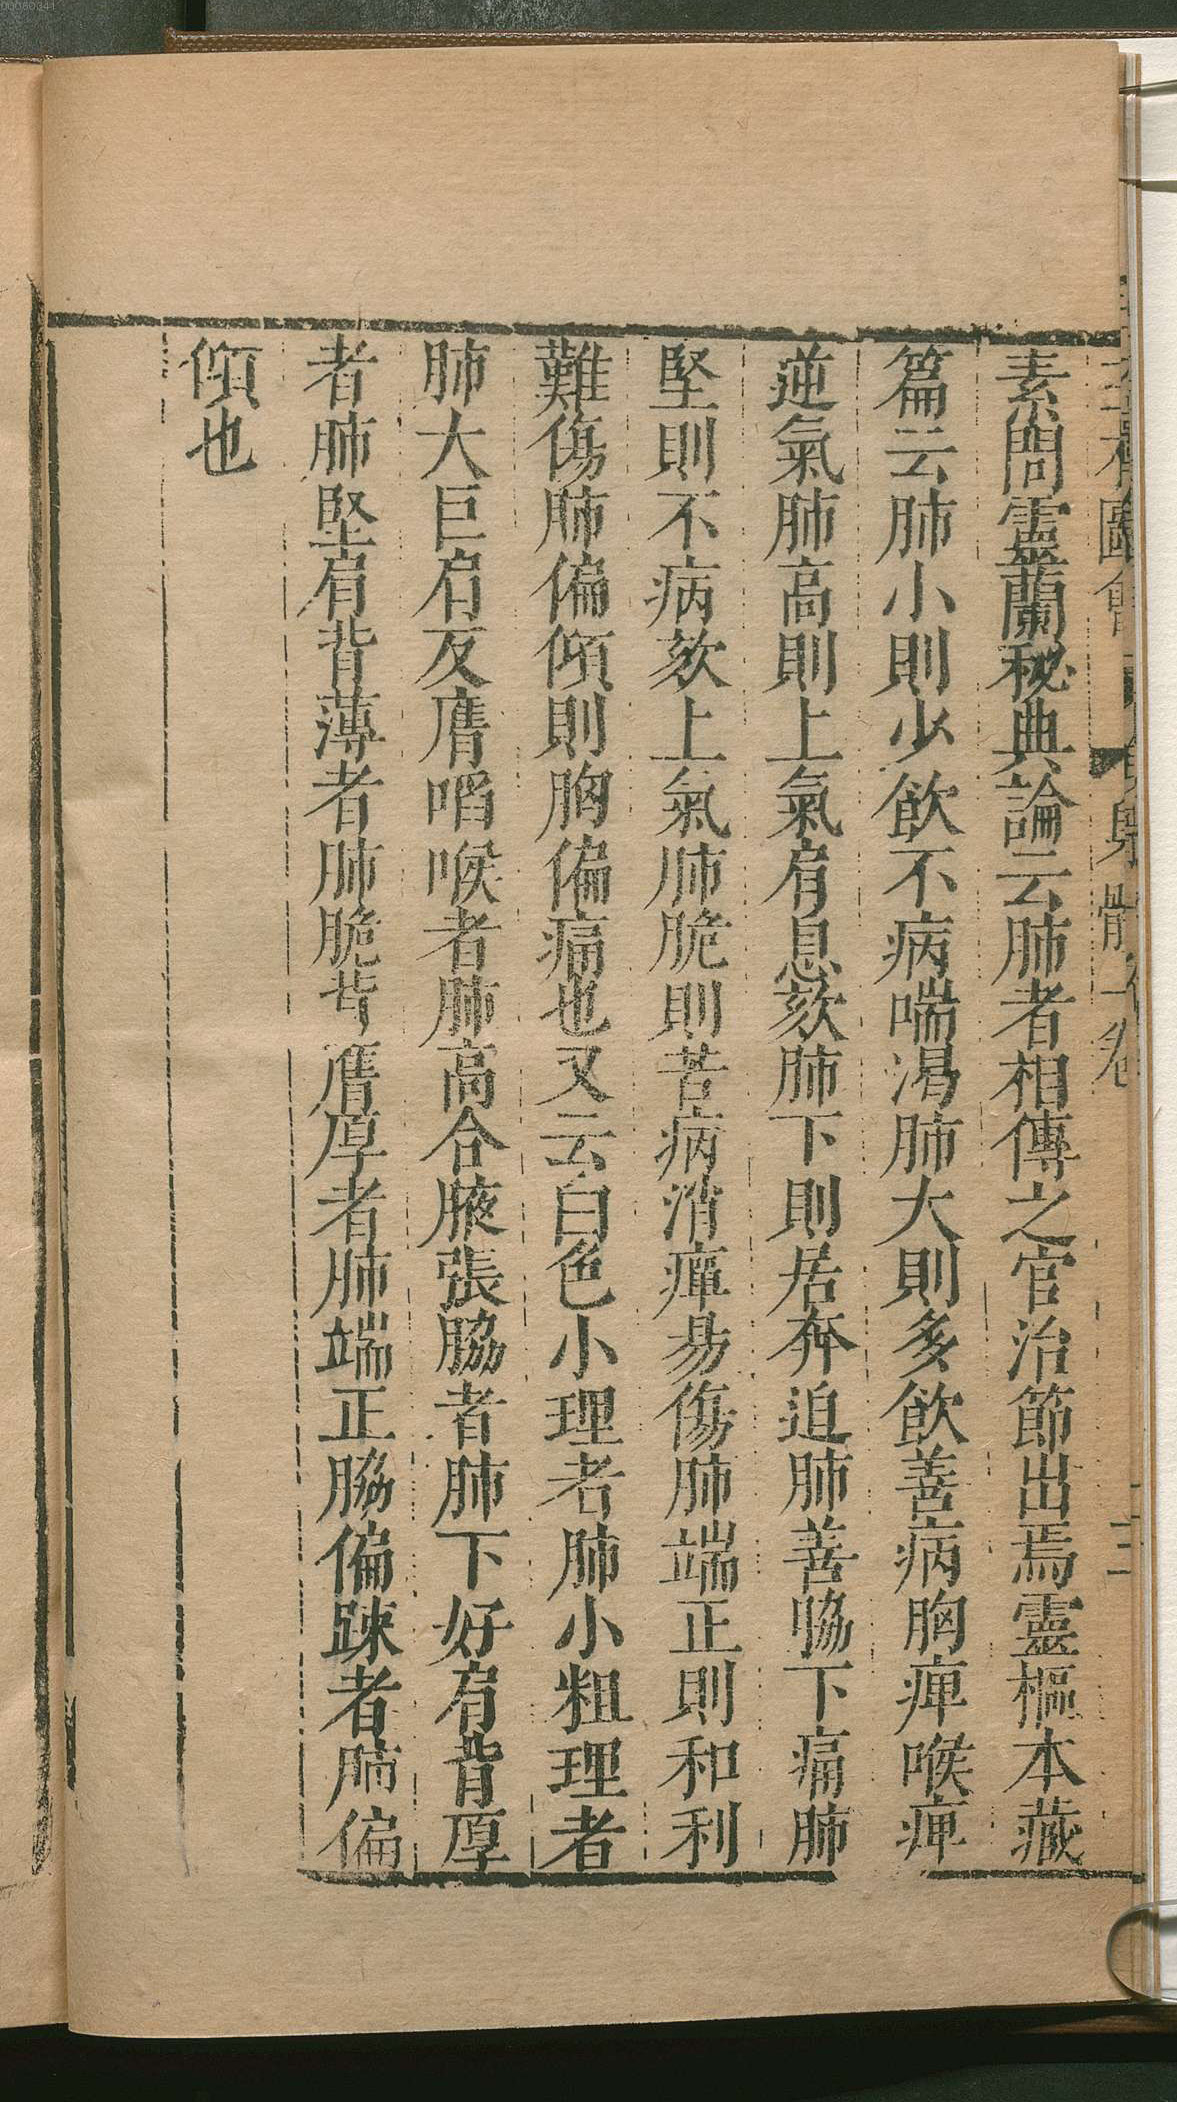 素問靈蘭秘典論云肺者相傳之官治節出焉靈樞本藏
篇云肺小則少飲不病喘渴肺大則多飲善病胸痺喉痺
逆氣肺高則上氣肩息欬肺下則居奔迫肺善脇下痛肺
堅則不病欬上氣肺脆則苦病消癉易傷肺端正則和利
難傷肺偏傾則胸偏痛也又云白色小理者肺小粗理者
肺大巨肩反膺㗖喉者肺高合腋張脇者肺下好肩背厚
者肺堅肩背薄者肺脆背膺厚者肺端正脇偏踈者肺偏
傾也
00060341